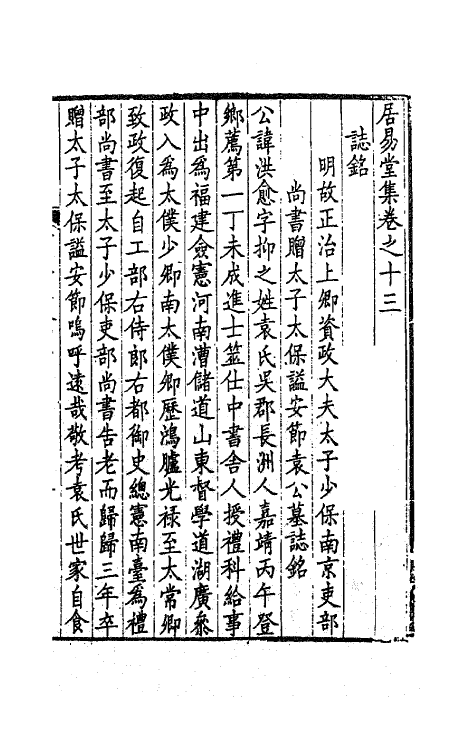 居易堂集卷之十三
誌銘
明故正治上卿資政大夫太子少保南京吏部
尚書贈太子太保謚安節袁公墓誌銘
公諱洪愈字抑之姓袁氏吳郡長洲人嘉靖丙午登
鄉薦第一丁未成進士筮仕中書舍人授禮科給事
中出為福建僉憲河南漕儲道山東督學道湖廣叅
政入為太僕少卿南太僕卿歷鴻臚光禄至太常卿
致政復起自工部右侍郎右都御史總憲南臺為禮
部尚書至太子少保吏部尚書告老而歸歸三年卒
贈太子太保謚安節嗚呼遠哉敬考袁氏世家自食